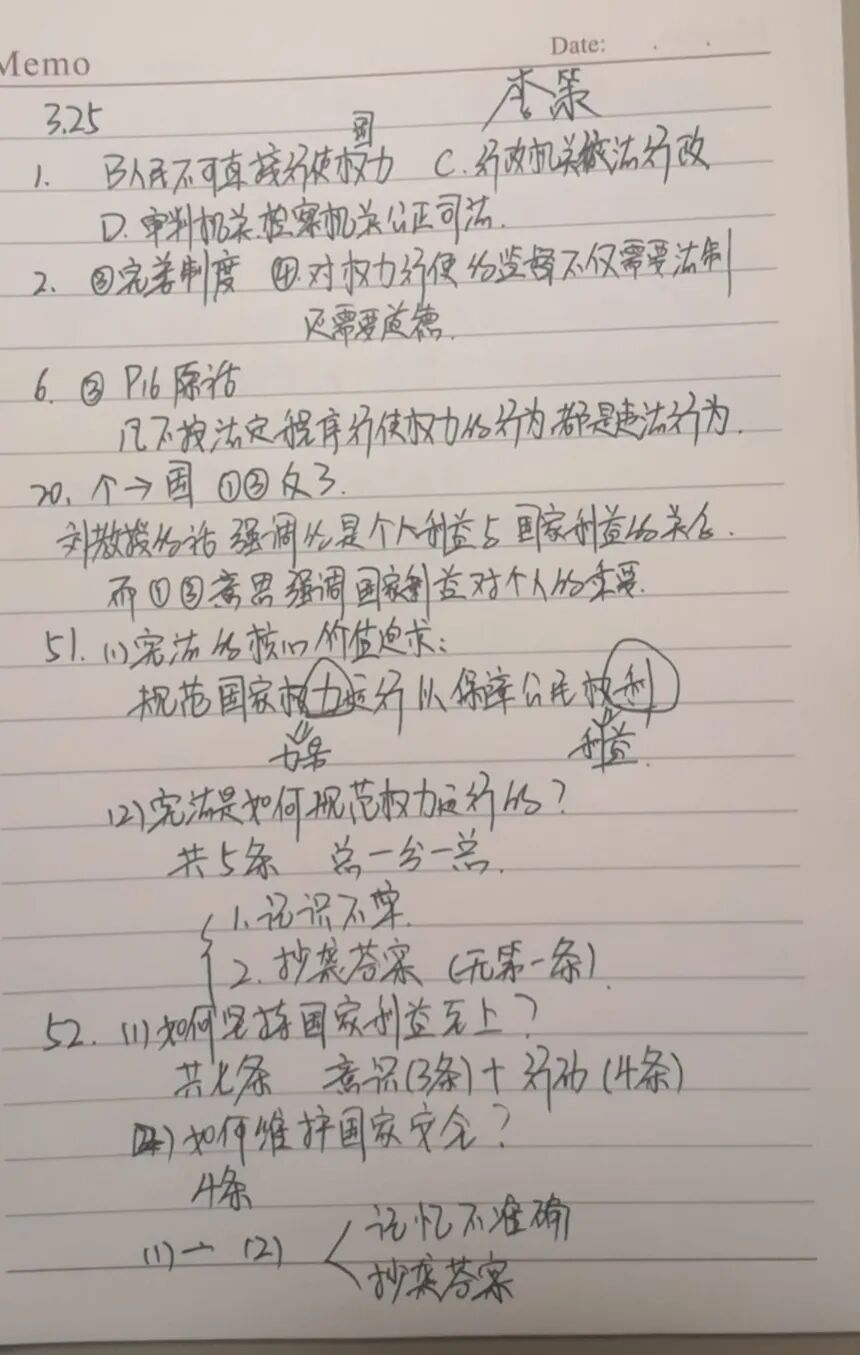 Memo
Date:
3.25
国
李策
1. B人民不可直接行使权力 C.行政机关依法行政
D.审判机关.检察机关公正司法.
2. ③完善制度 ④.对权力行使的监督不仅需要法制
还需要道德.
6. ③ P16原话
凡不按法定程序行使权力的行为,都是违法行为.
20. 个→国 ①③反了.
刘教授的话强调的是个人利益与国家利益的关系.
而①③意思强调国家利益对个人的重要.
51. (1)宪法的核心价值追求:
规范国家权力运行以保障公民权利
力量
利益.
(2)宪法是如何规范权力运行的?
共5条 总一分一总.
1.记识不牢.
2.抄袭答案 (无第一条).
52. (1)如何坚持国家利益至上?
共七条 意识(3条)+行动(4条)
(2)如何维护国家安全?
4条
(1)一(2)
记忆不准确
抄袭答案